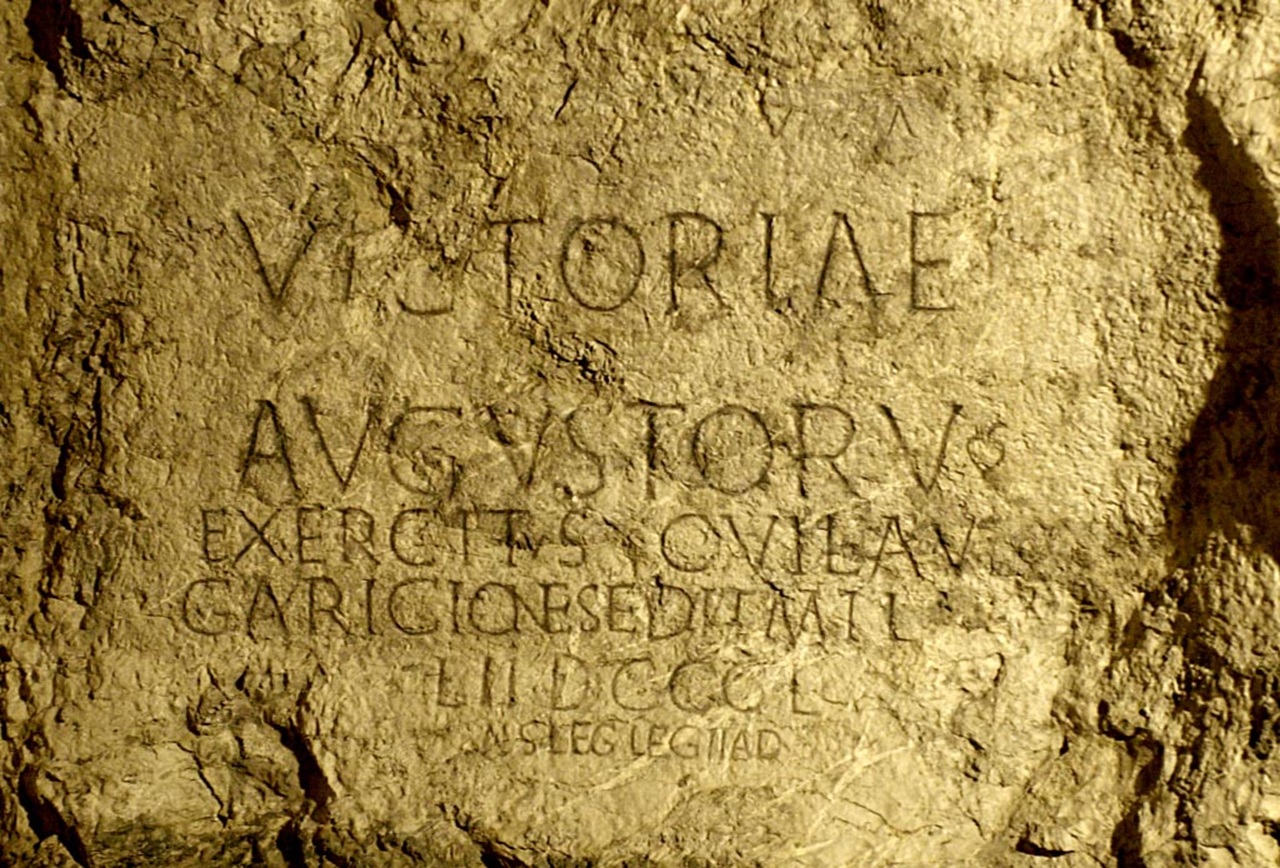 VICTORIAE
AVGVSTORV
EXERCITVS QVI LAV
GARICIONE SEDIT MIL
L II DCCCL
LEG LEG II AD